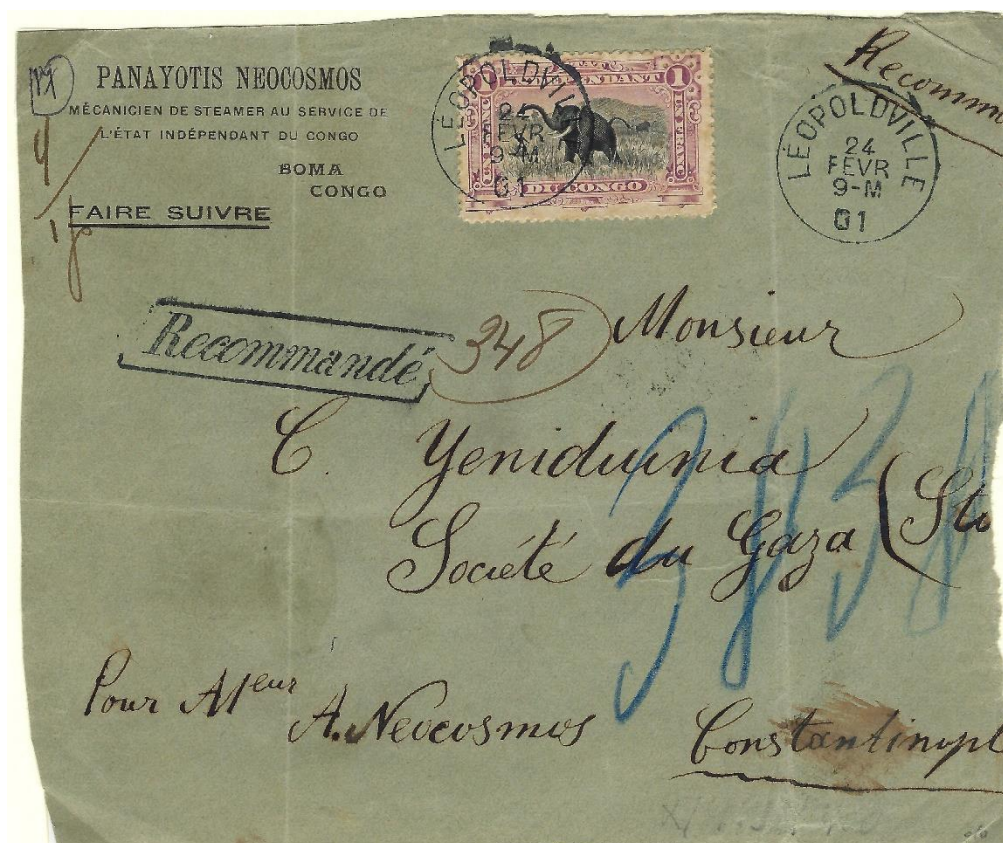 PANAYOTIS NEOCOSMOS
MÉCANICIEN DE STEAMER AU SERVICE DE
L'ÉTAT INDÉPENDANT DU CONGO
BOMA
CONGO
FAIRE SUIVRE
1
UN FRANC
DU CONGO
LÉOPOLDVILLE
24
FEVR
9-M
01
Recomm
LÉOPOLDVILLE
24
FEVR
9-M
01
Recommandé
348
Monsieur
C. Yeniduinia
Société du Gaza (Sto
Pour Mʳeur
A. Neocosmos
Constantinopl